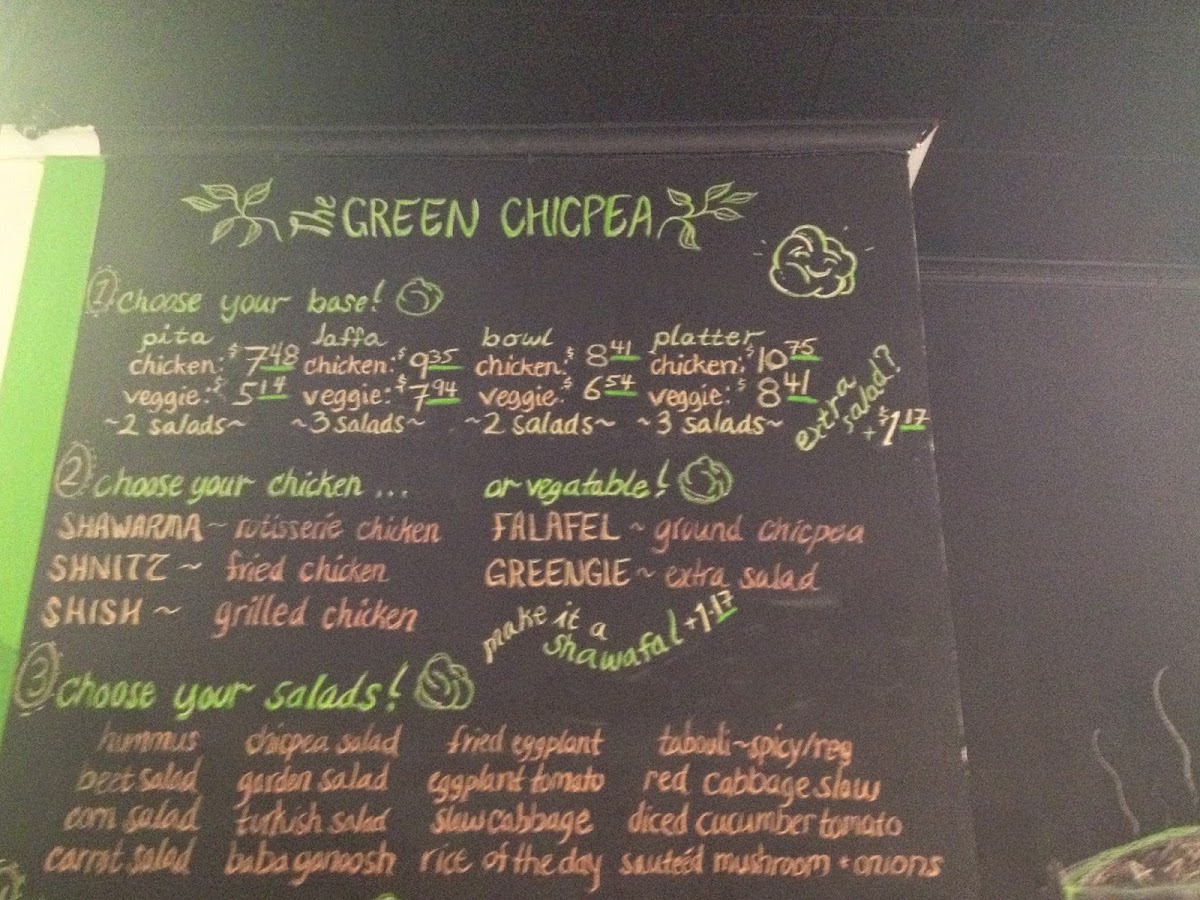 The GREEN CHICPEA
1 choose your base!
pita laffa bowl platter
chicken: $7.48 chicken: $9.35 chicken: $8.41 chicken: $10.75
veggie: $5.14 veggie: $7.94 veggie: $6.54 veggie: $8.41
~2 salads~ ~3 salads~ ~2 salads~ ~3 salads~
extra salad? + $1.17
2 choose your chicken ... or vegatable!
SHAWARMA ~ rotisserie chicken FALAFEL ~ ground chicpea
SHNITZ ~ fried chicken GREENGIE ~ extra salad
SHISH ~ grilled chicken
make it a shawafal +1.17
3 choose your salads!
hummus chicpea salad fried eggplant tabouli~spicy/reg
beet salad garden salad eggplant tomato red cabbage slaw
corn salad turkish salad slaw cabbage diced cucumber tomato
carrot salad baba ganoosh rice of the day sauteéd mushroom + onions